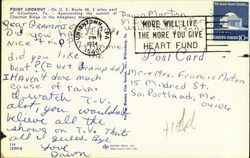 POINT LOOKOUT - On U. S. Route 40, 5 miles east
of Uniontown, Pa. - Approaching the summit of
Chestnut Ridge in the Allegheny
Dear Grampa
Did you have
nice trip?
did you like
boat? PG bet Grampa did
I HAVEn't done much
cause of rain.
I watch T.V.
alot, you wouldn't
believe all the
shows on T.V. that
all I guess Bye
Love
Dawn
UNIONTOWN, PA
PM
1974
MORE WILL LIVE
THE MORE YOU GIVE
HEART FUND
Post Card
Mr + Mrs. Francis Maton
15 Mildred St.
So. Portland, Me.
04106